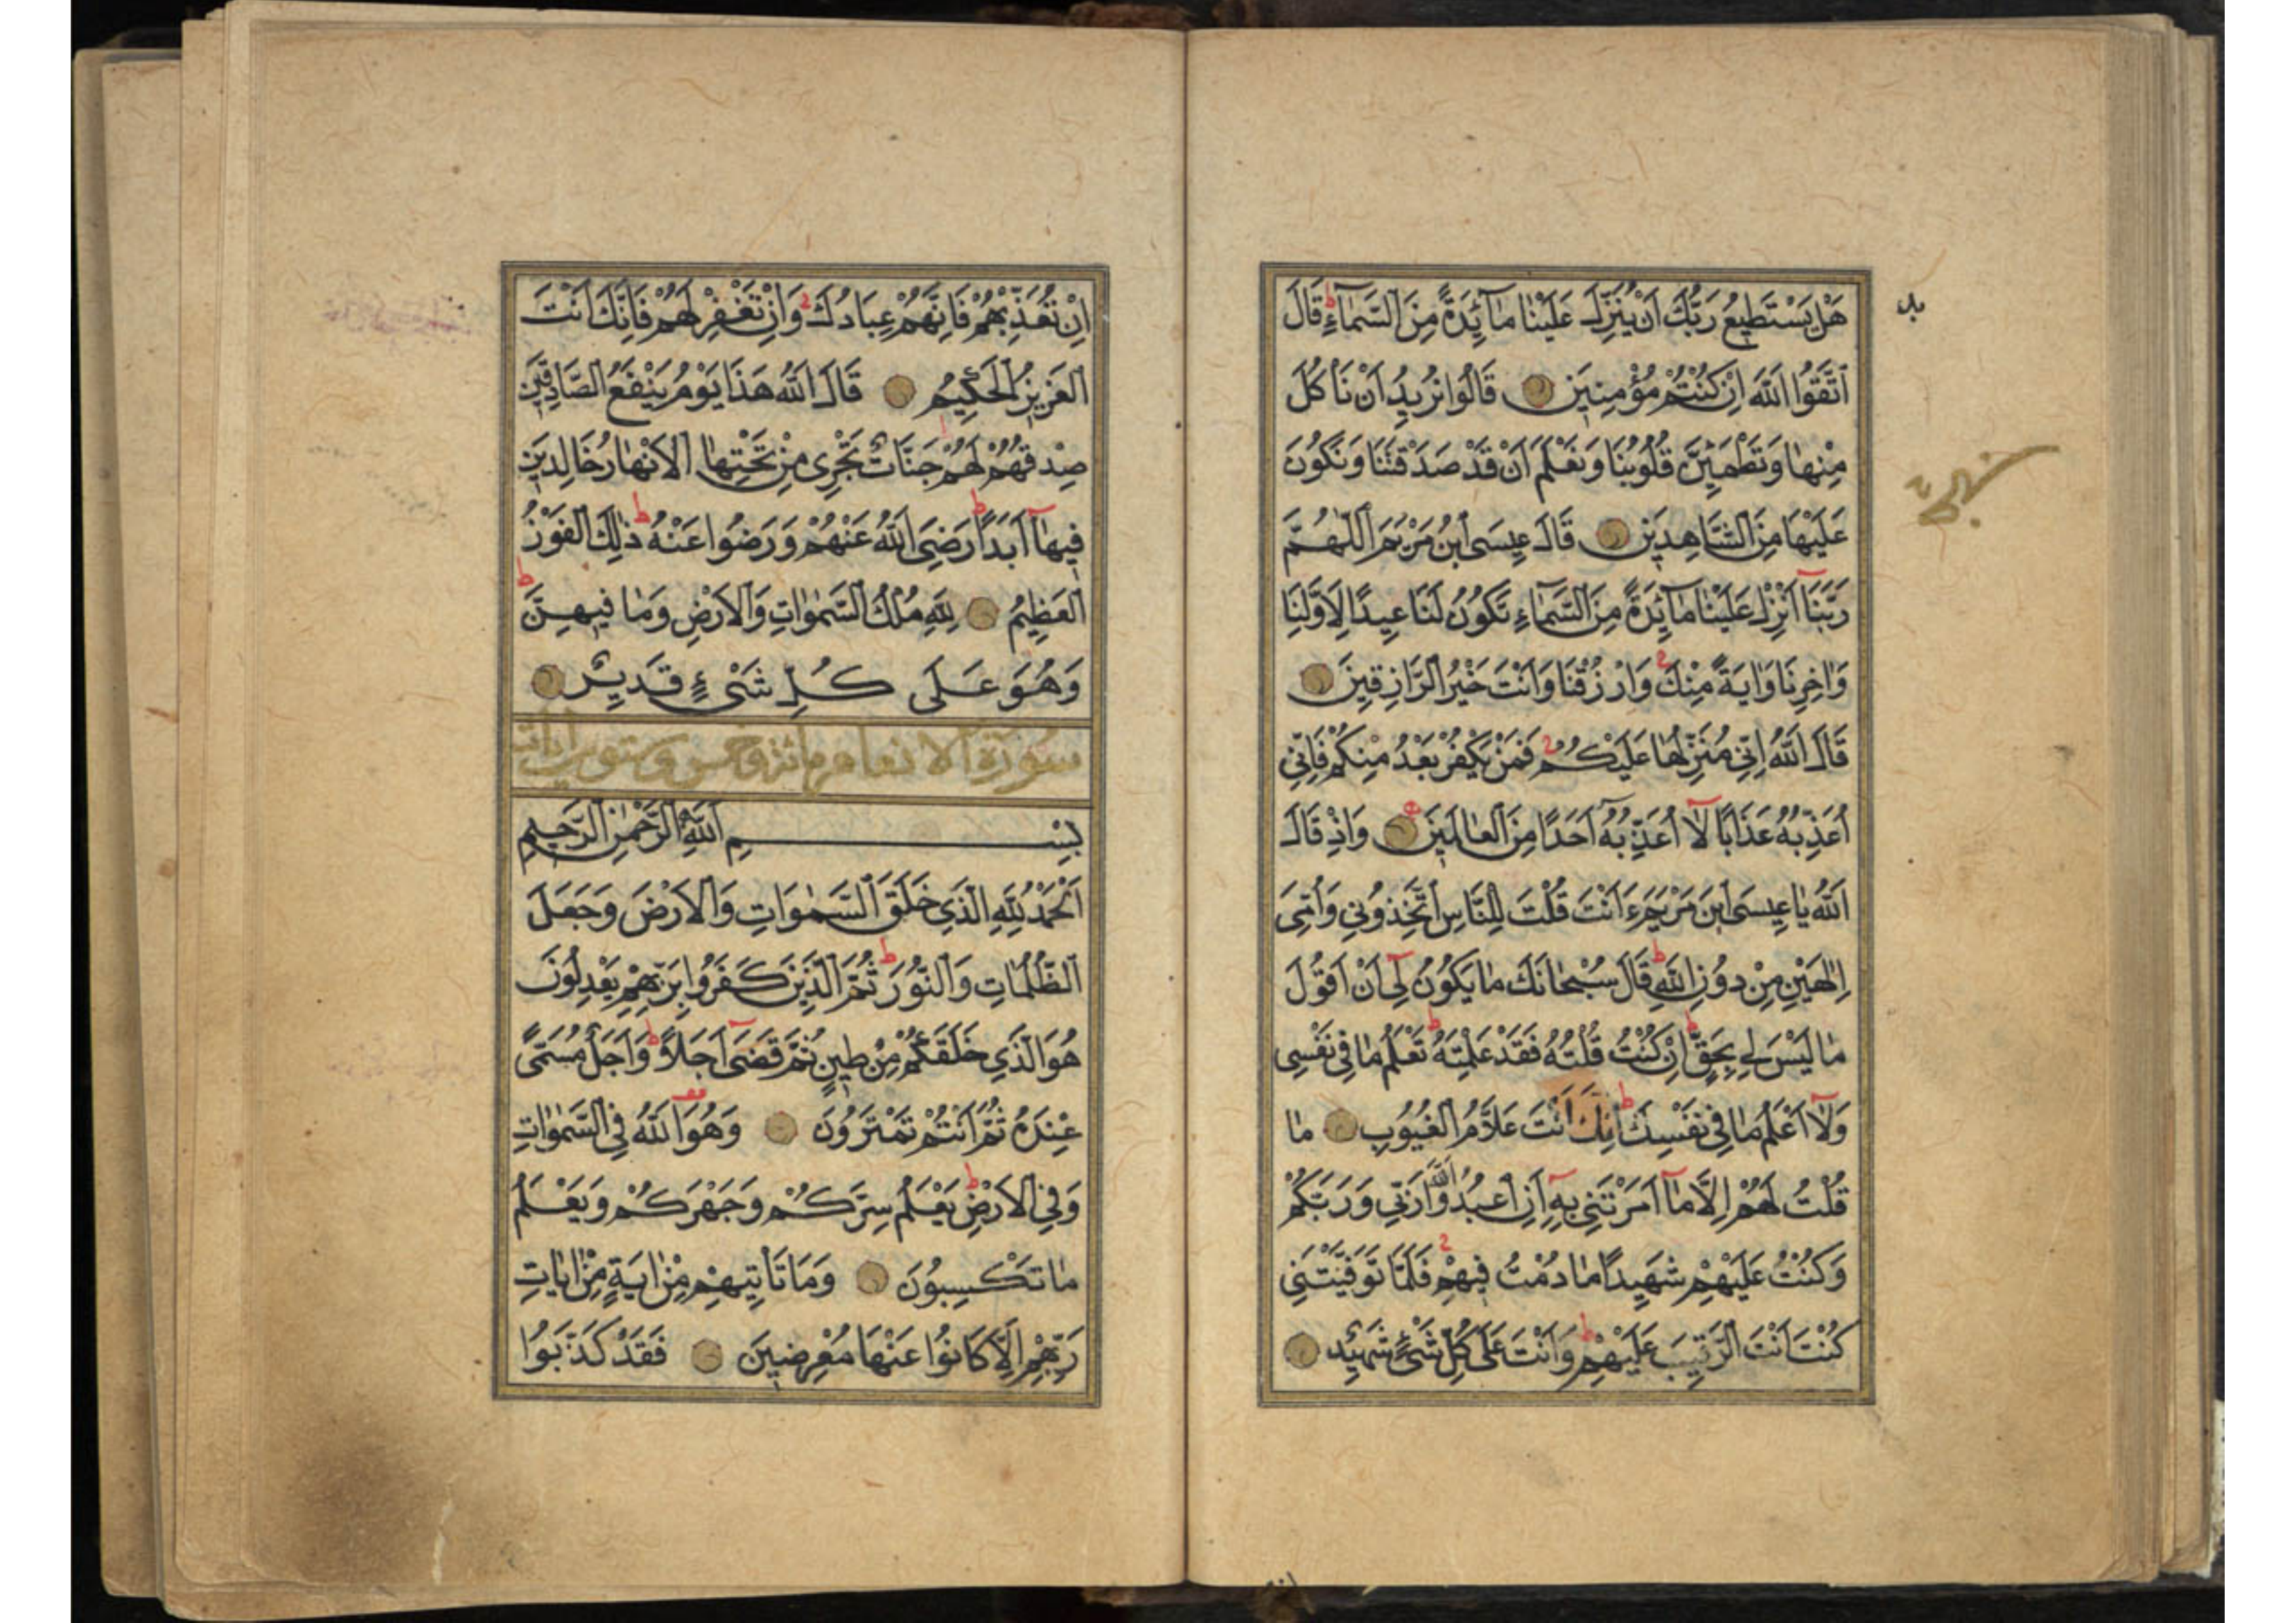 هَلْ يَسْتَطِيعُ رَبُّكَ اَنْ يُنَزِّلَ عَلَيْنَا مَآئِدَةً مِنَ السَّمَآءِ ط قَالَ
اتَّقُوا اللّٰهَ اِنْ كُنْتُمْ مُؤْمِنِينَ قَالُوا نُرِيدُ اَنْ نَأكُلَ
مِنْهَا وَتَطْمَئِنَّ قُلُوبُنَا وَنَعْلَمَ اَنْ قَدْ صَدَقْتَنَا وَنَكُونَ
عَلَيْهَا مِنَ الشَّاهِدِينَ قَالَ عِيسَى ابْنُ مَرْيَمَ اللّٰهُمَّ
رَبَّنَا اَنْزِلْ عَلَيْنَا مَآئِدَةً مِنَ السَّمَآءِ تَكُونُ لَنَا عِيدًا لِاَوَّلِنَا
وَاٰخِرِنَا وَاٰيَةً مِنْكَ وَارْزُقْنَا وَاَنْتَ خَيْرُ الرَّازِقِينَ
قَالَ اللّٰهُ اِنِّي مُنَزِّلُهَا عَلَيْكُمْ فَمَنْ يَكْفُرْ بَعْدُ مِنْكُمْ فَاِنِّي
اُعَذِّبُهُ عَذَابًا لَا اُعَذِّبُهُ اَحَدًا مِنَ الْعَالَمِينَ وَاِذْ قَالَ
اللّٰهُ يَا عِيسَى ابْنَ مَرْيَمَ ءَاَنْتَ قُلْتَ لِلنَّاسِ اتَّخِذُونِي وَاُمِّيَ
اِلٰهَيْنِ مِنْ دُونِ اللّٰهِ ط قَالَ سُبْحَانَكَ مَا يَكُونُ لِي اَنْ اَقُولَ
مَا لَيْسَ لِي بِحَقٍّ ط اِنْ كُنْتُ قُلْتُهُ فَقَدْ عَلِمْتَهُ ط تَعْلَمُ مَا فِي نَفْسِي
وَلَا اَعْلَمُ مَا فِي نَفْسِكَ ط اِنَّكَ اَنْتَ عَلَّامُ الْغُيُوبِ مَا
قُلْتُ لَهُمْ اِلَّا مَا اَمَرْتَنِي بِهِ اَنِ اعْبُدُوا اللّٰهَ رَبِّي وَرَبَّكُمْ
وَكُنْتُ عَلَيْهِمْ شَهِيدًا مَا دُمْتُ فِيهِمْ فَلَمَّا تَوَفَّيْتَنِي
كُنْتَ اَنْتَ الرَّقِيبَ عَلَيْهِمْ ط وَاَنْتَ عَلَى كُلِّ شَيْءٍ شَهِيدٌ
اِنْ تُعَذِّبْهُمْ فَاِنَّهُمْ عِبَادُكَ وَاِنْ تَغْفِرْ لَهُمْ فَاِنَّكَ اَنْتَ
الْعَزِيزُ الْحَكِيمُ قَالَ اللّٰهُ هَذَا يَوْمُ يَنْفَعُ الصَّادِقِينَ
صِدْقُهُمْ لَهُمْ جَنَّاتٌ تَجْرِي مِنْ تَحْتِهَا الْاَنْهَارُ خَالِدِينَ
فِيهَا اَبَدًا ط رَضِيَ اللّٰهُ عَنْهُمْ وَرَضُوا عَنْهُ ط ذٰلِكَ الْفَوْزُ
الْعَظِيمُ لِلّٰهِ مُلْكُ السَّمٰوَاتِ وَالْاَرْضِ وَمَا فِيهِنَّ ط
وَهُوَ عَلَى كُلِّ شَيْءٍ قَدِيرٌ
سورة الانعام مائة وخمس وستون ايات
بِسْمِ اللّٰهِ الرَّحْمٰنِ الرَّحِيمِ
اَلْحَمْدُ لِلّٰهِ الَّذِي خَلَقَ السَّمٰوَاتِ وَالْاَرْضَ وَجَعَلَ
الظُّلُمَاتِ وَالنُّورَ ط ثُمَّ الَّذِينَ كَفَرُوا بِرَبِّهِمْ يَعْدِلُونَ
هُوَ الَّذِي خَلَقَكُمْ مِنْ طِينٍ ثُمَّ قَضَى اَجَلًا ط وَاَجَلٌ مُسَمًّى
عِنْدَهُ ثُمَّ اَنْتُمْ تَمْتَرُونَ وَهُوَ اللّٰهُ فِي السَّمٰوَاتِ
وَفِي الْاَرْضِ ط يَعْلَمُ سِرَّكُمْ وَجَهْرَكُمْ وَيَعْلَمُ
مَا تَكْسِبُونَ وَمَا تَأْتِيهِمْ مِنْ اٰيَةٍ مِنْ اٰيَاتِ
رَبِّهِمْ اِلَّا كَانُوا عَنْهَا مُعْرِضِينَ فَقَدْ كَذَّبُوا